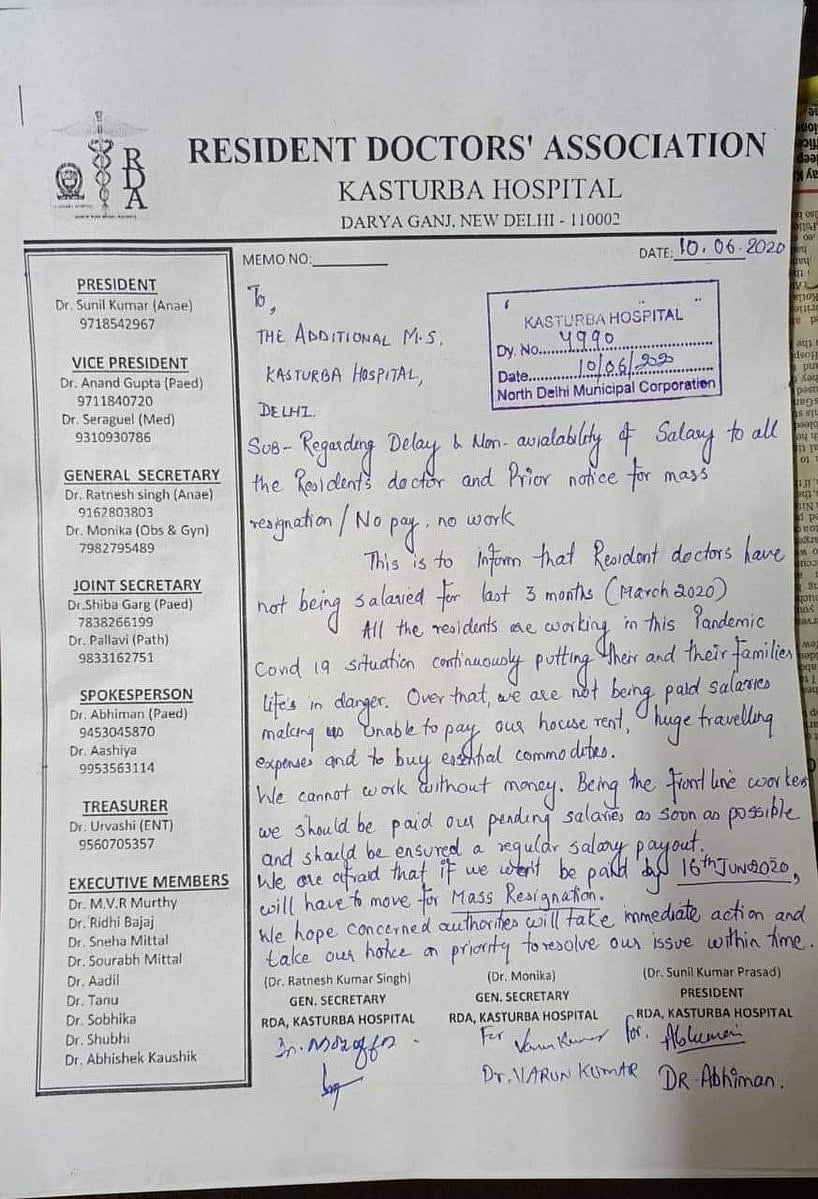 RDA
RESIDENT DOCTORS' ASSOCIATION
KASTURBA HOSPITAL
DARYA GANJ, NEW DELHI - 110002
MEMO NO:
DATE: 10.06.2020
PRESIDENT
Dr. Sunil Kumar (Anae)
9718542967
VICE PRESIDENT
Dr. Anand Gupta (Paed)
9711840720
Dr. Seraguel (Med)
9310930786
GENERAL SECRETARY
Dr. Ratnesh singh (Anae)
9162803803
Dr. Monika (Obs & Gyn)
7982795489
JOINT SECRETARY
Dr.Shiba Garg (Paed)
7838266199
Dr. Pallavi (Path)
9833162751
SPOKESPERSON
Dr. Abhiman (Paed)
9453045870
Dr. Aashiya
9953563114
TREASURER
Dr. Urvashi (ENT)
9560705357
EXECUTIVE MEMBERS
Dr. M.V.R Murthy
Dr. Ridhi Bajaj
Dr. Sneha Mittal
Dr. Sourabh Mittal
Dr. Aadil
Dr. Tanu
Dr. Sobhika
Dr. Shubhi
Dr. Abhishek Kaushik
To,
THE ADDITIONAL M.S.
KASTURBA HOSPITAL,
DELHI.
KASTURBA HOSPITAL
Dy. No. 4990
Date 10/06/2020
North Delhi Municipal Corporation
SUB- Regarding Delay & Non-avialability of Salary to all
the Residents doctor and Prior notice for mass
resignation / No pay, no work
This is to inform that Resident doctors have
not being salaried for last 3 months (March 2020)
All the residents are working in this Pandemic
Covid 19 situation continuously putting their and their families
life's in danger. Over that, we are not being paid salaries
making us unable to pay our house rent, huge travelling
expenses and to buy essential commodities.
We cannot work without money. Being the frontline worker
we should be paid our pending salaries as soon as possible
and should be ensured a regular salary payout.
We are afraid that if we won't be paid by 16th JUN 2020,
will have to move for Mass Resignation.
We hope concerned authorities will take immediate action and
take our notice on priority to resolve our issue within time.
(Dr. Ratnesh Kumar Singh)
GEN. SECRETARY
RDA, KASTURBA HOSPITAL
(Dr. Monika)
GEN. SECRETARY
RDA, KASTURBA HOSPITAL
For Varun Kumar
Dr. VARUN KUMAR
(Dr. Sunil Kumar Prasad)
PRESIDENT
RDA, KASTURBA HOSPITAL
for.
DR. Abhiman.